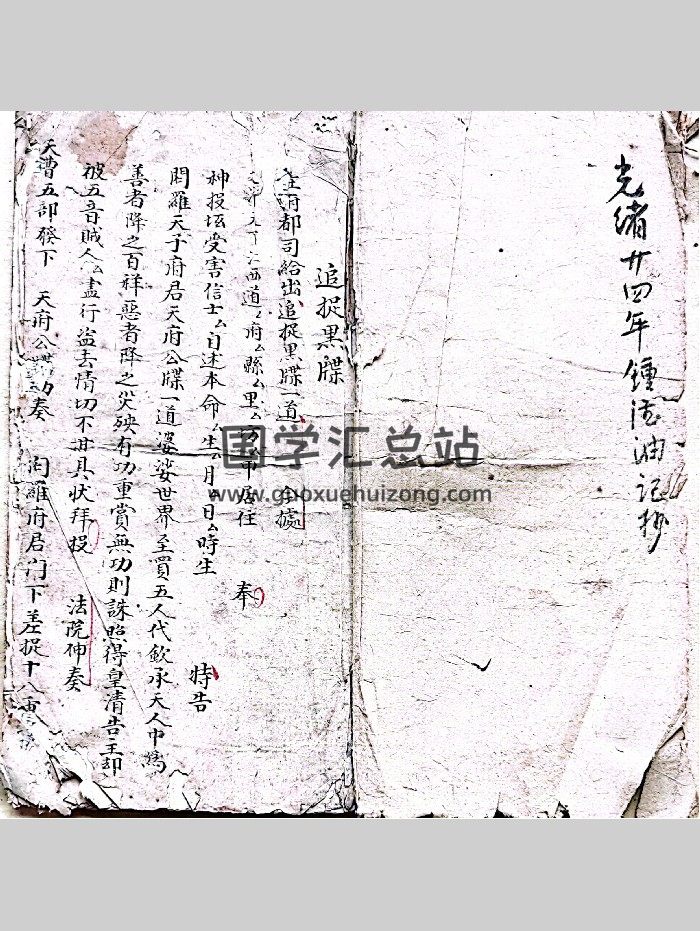 光緒廿四年鍾法油記抄
追捉黑牒
府都司給出追捉黑牒一道 今據
江西道厶府厶縣厶里厶坊厶甲居住 奉
神投坛受害信士厶自述本命厶生厶月厶日厶時生 特告
閻羅天子府君天府公牒一道婆娑世界至買五人代欽承天人巾為
善者降之百祥惡者降之災殃有功重賞無功則誅照得皇清告王却
被五音賊人厶盡行盜去情切不甘具狀拜投 法院伸奏
天曹五部發下 天府公牒功奏 閻羅府君門下差捉十八重
国学汇总站
www.guoxuehuizong.com